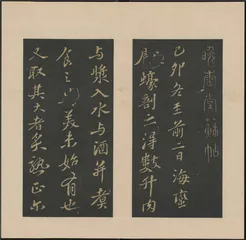 晚香堂蘇帖
己卯冬至前二日海蠻
獻蠔剖之得數升肉
与漿入水与酒並煮
食之甚美未始有也
又取其大者炙熟正尔